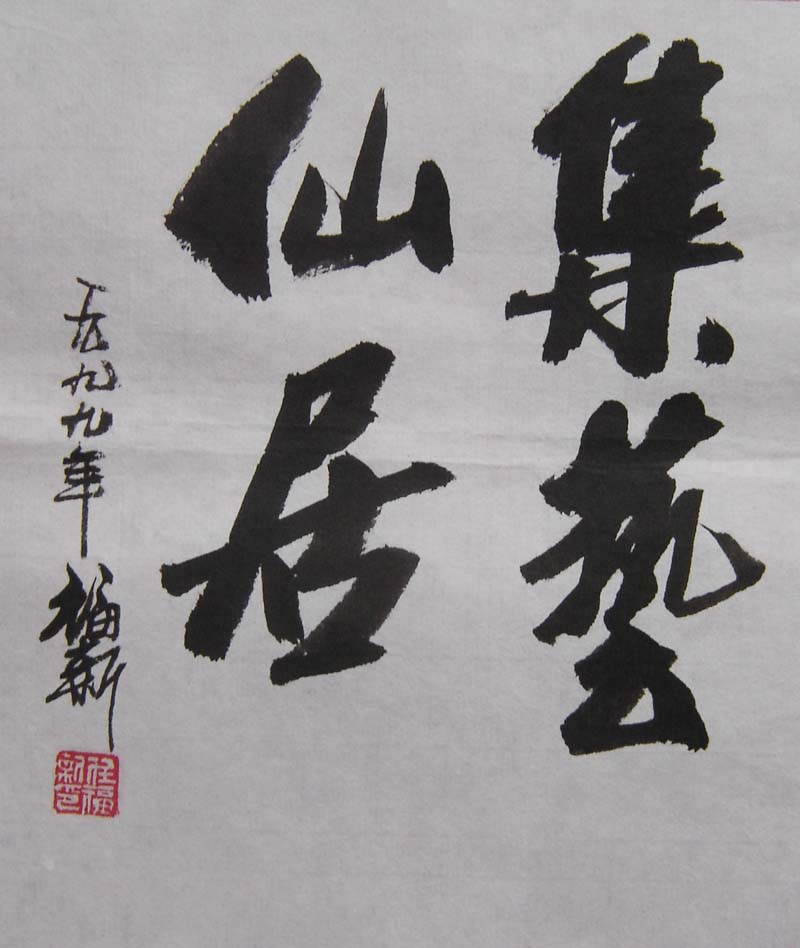 集藝
仙居
一九九九年 福新
任福
新印